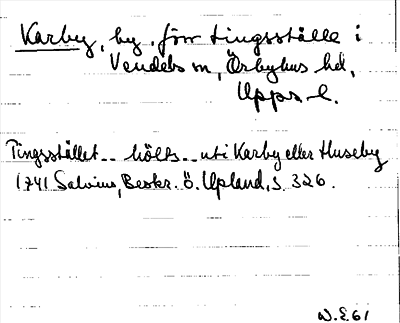 Karby, by, förr tingsställe i
Vendels sn, Örbyhus hd,
Upps. l.
Tingsstället -- hölts -- uti Karby eller Huseby
1741 Salvius, Beskr. ö. Upland, s. 326.
N.E 61